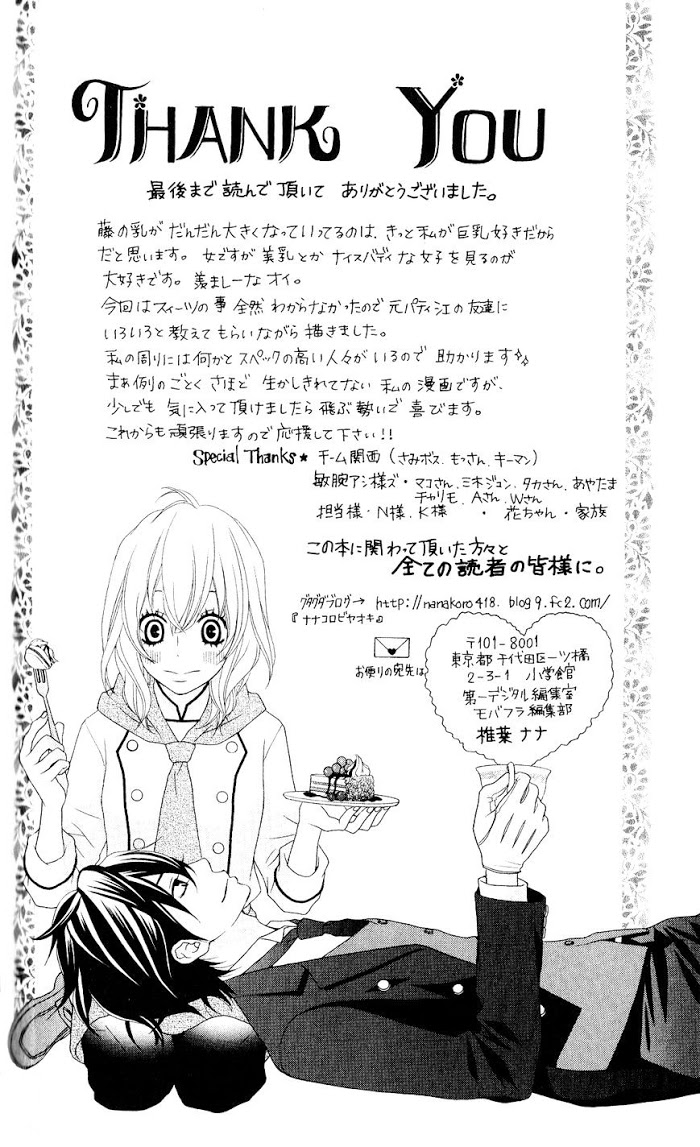 THANK YOU
最後まで読んで頂いて ありがとうございました。
藤の乳が だんだん大きくなっていってるのは、きっと私が巨乳好きだから
だと思います。 女ですが 美乳とか ナイスバディな女子を見るのが
大好きです。羨ましーな オイ。
今回はスイーツの事 全然わからなかったので 元パティシエの友達に
いろいろと教えてもらいながら 描きました。
私の周りには何かとスペックの高い人々がいるので 助かります
まぁ例のごとく さほど 生かしきれてない 私の漫画ですが、
少しでも 気に入って頂けましたら 飛ぶ勢いで 喜びます。
これからも頑張りますので応援して下さい!!
Special Thanks★ チーム関西(さみボス、もっさん、キーマン)
敏腕アシ様ズ・マコさん、三木ジョン、タカさん、あやたま
チャリモ、Aさん、Wさん
担当様・N様、K様 ・ 花ちゃん・家族
この本に関わって頂いた方々と
全ての読者の皆様に。
グダグダブログ→ http://nanakoro418.blog9.fc2.com/
『ナナコロビヤオキ』
お便りの宛先は
〒101-8001
東京都千代田区一ツ橋
2-3-1 小学館
第一デジタル編集室
モバフラ編集部
椎葉 ナナ